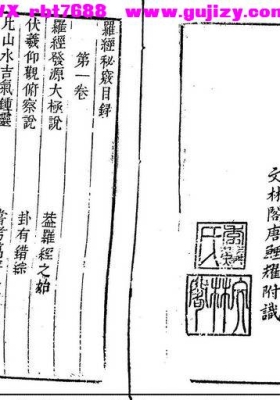 www.gujizy.com
文林閣唐鯉耀附識
文林閣
羅經秘竅目録
第一卷
羅經發源太極說 葢羅經之始
伏羲仰觀俯察說 卦有錯綜
山水吉氣鍾靈